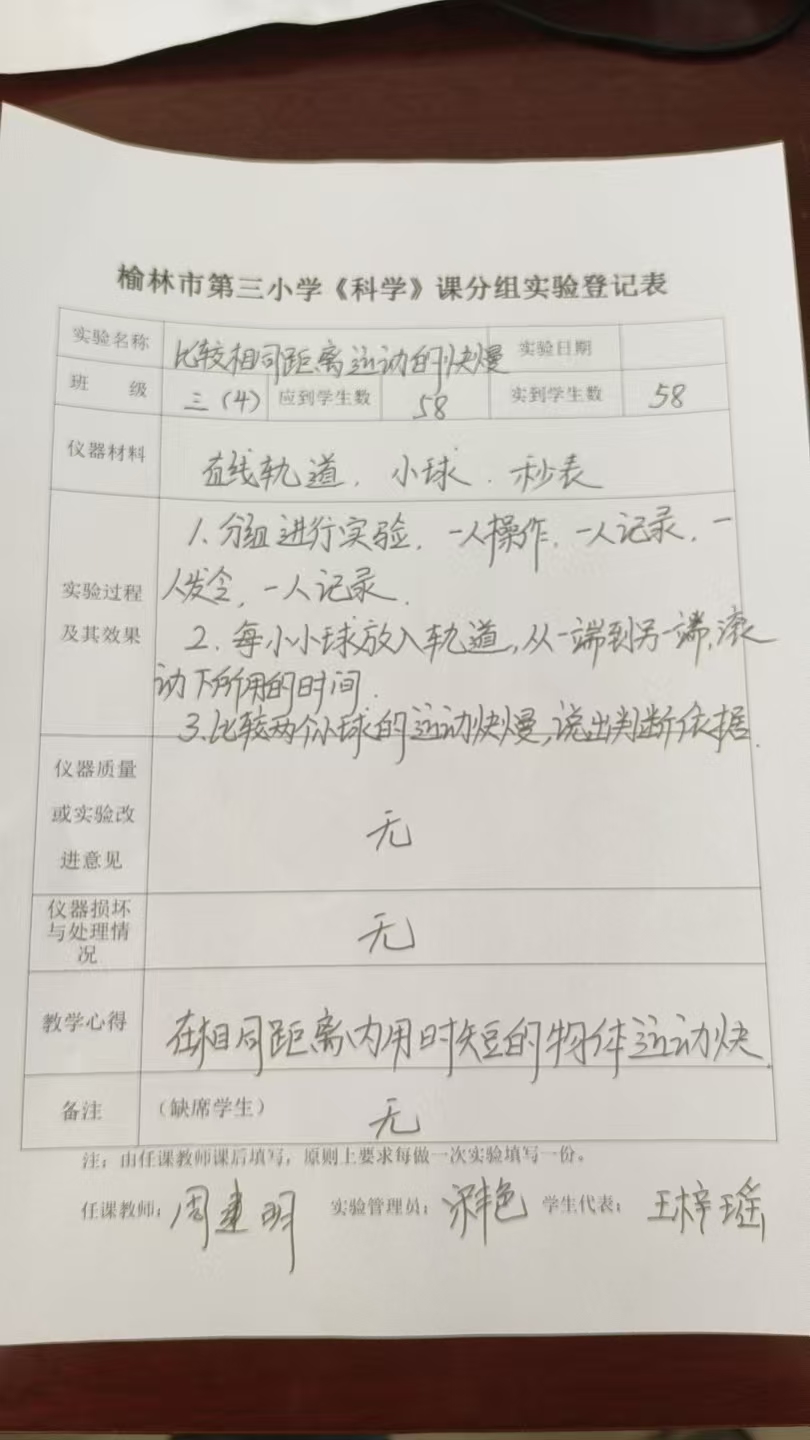 榆林市第三小学《科学》课分组实验登记表
实验名称 比较相同距离运动的快慢 实验日期
班 级 三(4) 应到学生数 58 实到学生数 58
仪器材料 直线轨道、小球、秒表
1、分组进行实验，一人操作，一人记录，一
实验过程 人发令，一人记录．
及其效果 2．每小小球放入轨道，从一端到另一端，滚
动下所用的时间．
3.比较两个小球的运动快慢，说出判断依据．
仪器质量
或实验改
进意见
无
仪器损坏
与处理情
况
无
教学心得 在相同距离内用时短的物体运动快．
备注 (缺席学生) 无
注：由任课教师课后填写，原则上要求每做一次实验填写一份。
任课教师：周建明 实验管理员：艳 学生代表：王梓瑶